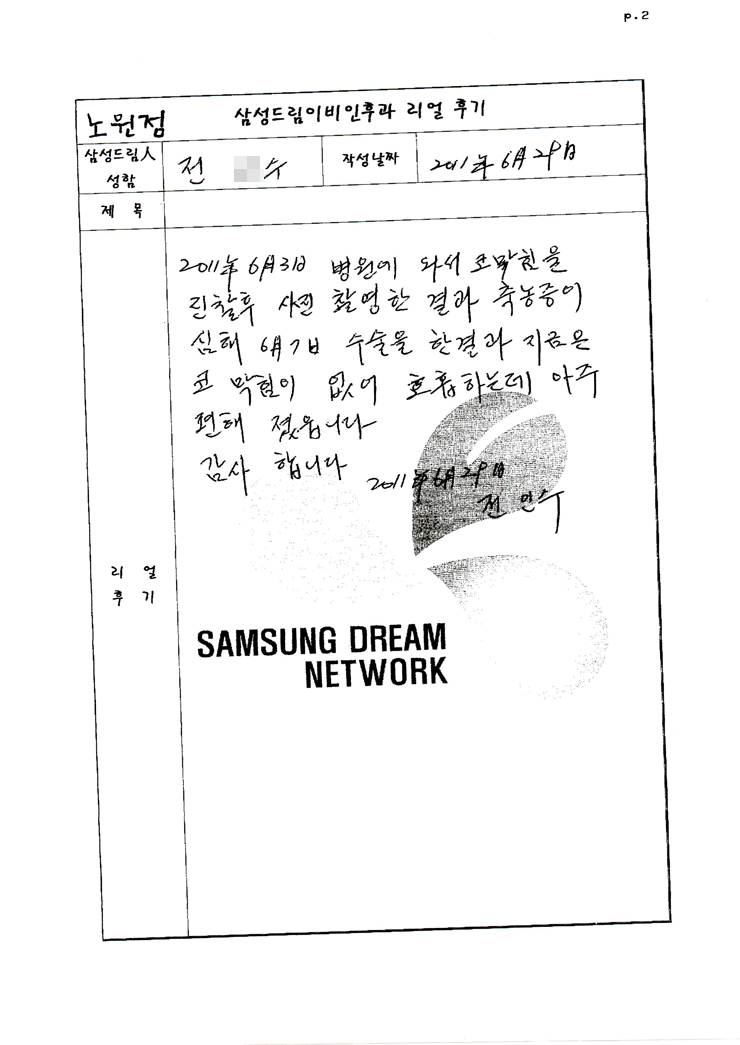 p.2
노원점 삼성드림이비인후과 리얼 후기
삼성드림人 성함 전 수 작성날짜 2011年 6月 29日
제 목
2011年 6月3日 병원에 와서 코막힘을
진찰후 사진 촬영한 결과 축농증이
심해 6月7日 수술을 한결과 지금은
코 막힘이 없어 호흡하는데 아주
편해 졌읍니다
감사 합니다
2011年 6月 29日
전 민수
리 얼
후 기
SAMSUNG DREAM
NETWORK